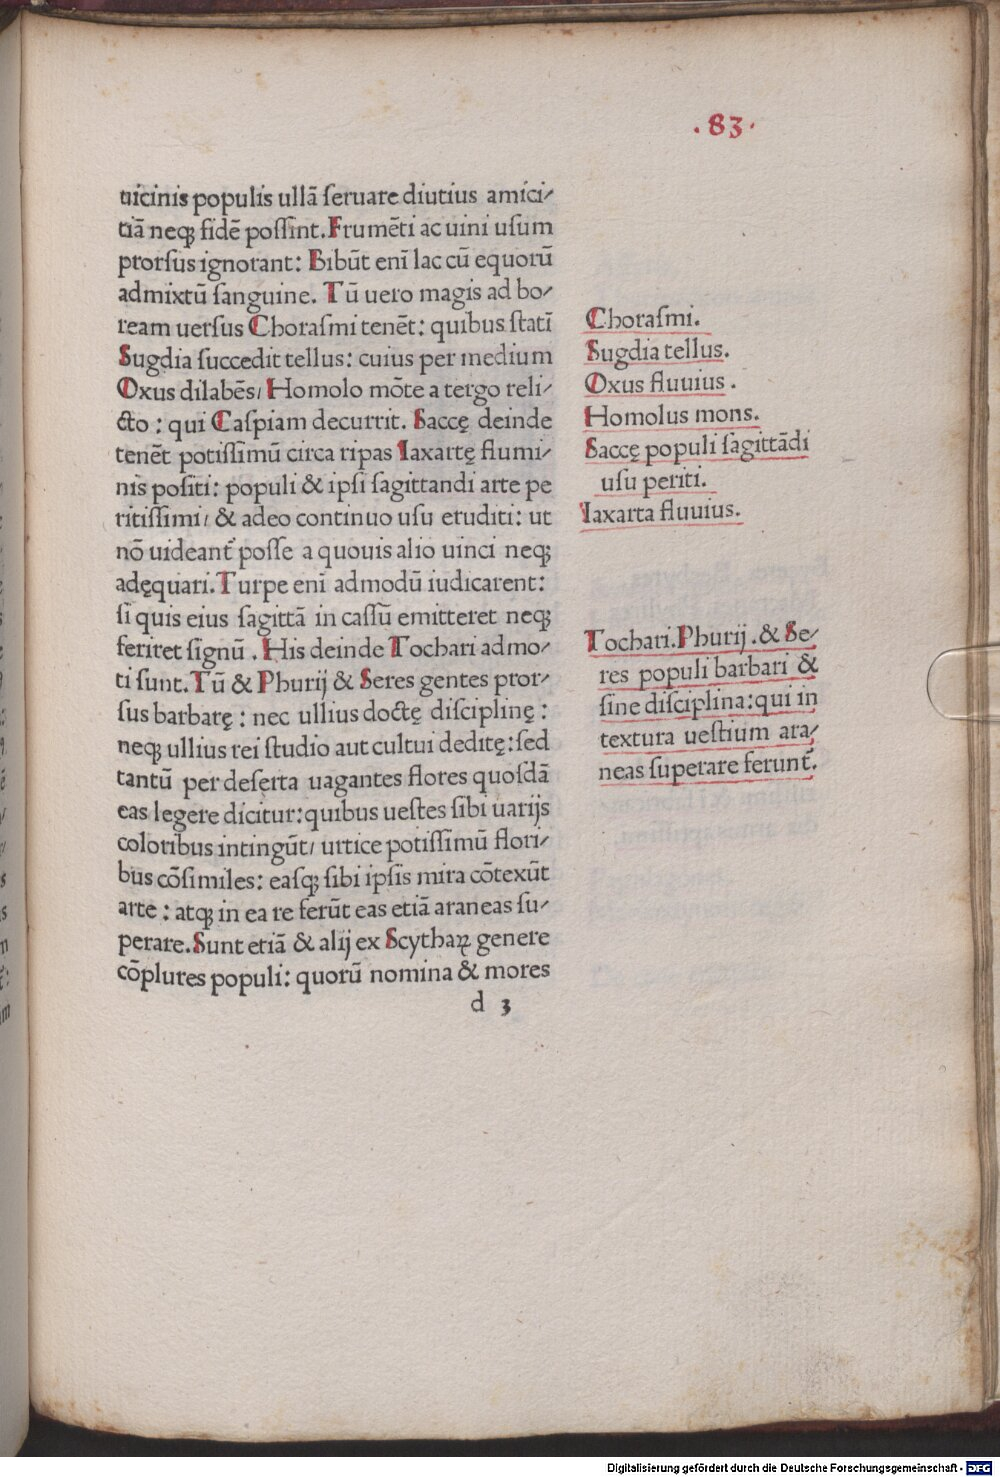 .83.
uicinis populis ullā ſeruare diutius amici/
tiā neqꝫ fidē poſſint. Frumēti ac uini uſum
prorſus ignorant: Bibūt enī lac cū equorū
admixtū ſanguine. Tū uero magis ad bo/
ream uerſus Choraſmi tenēt: quibus ſtatī
Sugdia ſuccedit tellus: cuius per medium
Oxus dilabēs/ Homolo mōte a tergo reli/
cto: qui Caſpiam decurrit. Saccę deinde
tenēt potiſſimū circa ripas Iaxartę flumi/
nis poſiti: populi & ipſi ſagittandi arte pe
ritiſſimi/ & adeo continuo uſu eruditi: ut
nō uideant᷑ poſſe a quouis alio uinci neqꝫ
adęquari. Turpe enī admodū iudicarent:
ſi quis eius ſagittā in caſſū emitteret neqꝫ
feriret ſignū. His deinde Tochari admo/
ti ſunt. Tū & Phurij & Seres gentes pror/
ſus barbarę: nec ullius doctę diſciplinę:
neqꝫ ullius rei ſtudio aut cultui deditę: ſed
tantū per deſerta uagantes flores quoſdā
eas legere dicitur: quibus ueſtes ſibi uarijs
coloribus intingūt/ urtice potiſſimū flori/
bus cōſimiles: eaſqꝫ ſibi ipſis mira cōtexūt
arte: atqꝫ in ea re ferūt eas etiā araneas ſu/
perare. Sunt etiā & alij ex Scythaꝝ genere
cōplures populi: quorū nomina & mores
d 3
Choraſmi.
Sugdia tellus.
Oxus fluuius.
Homolus mons.
Saccę populi ſagittādi
uſu periti.
Iaxarta fluuius.
Tochari. Phurij. & Se/
res populi barbari &
ſine diſciplina: qui in
textura ueſtium ara/
neas ſuperare ferunt᷑.
Digitalisierung gefördert durch die Deutsche Forschungsgemeinschaft - DFG